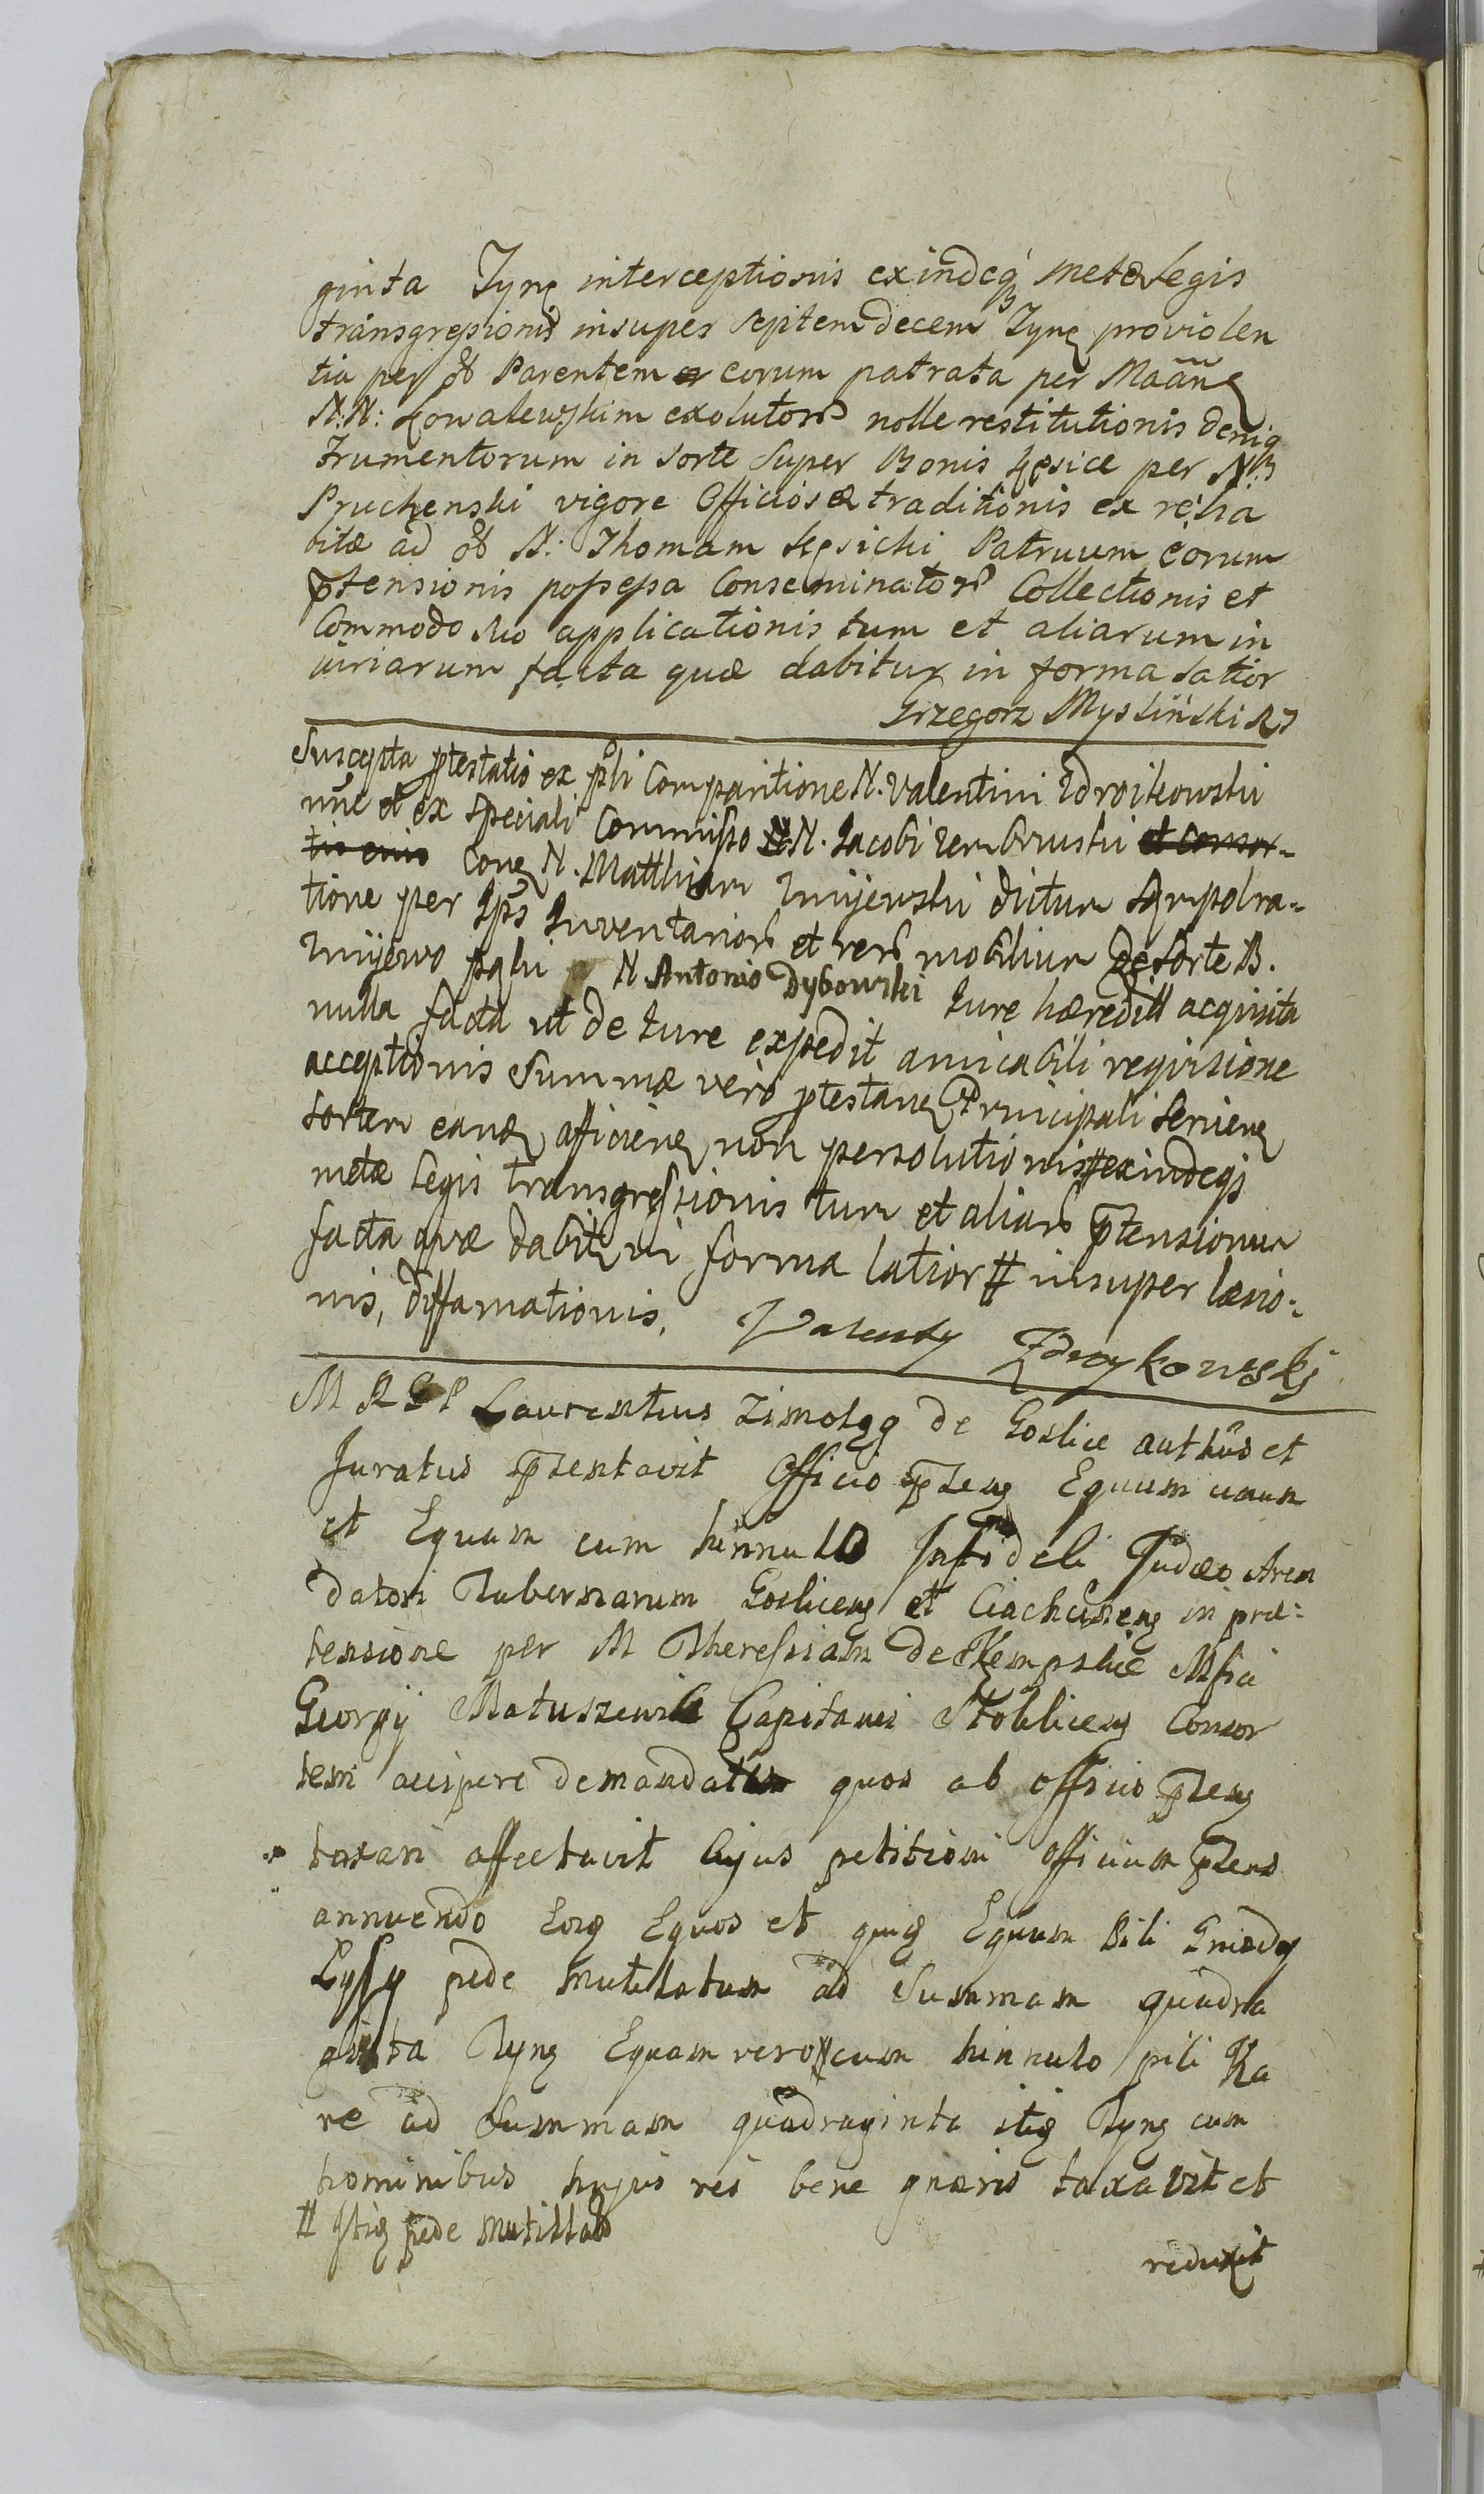 ginta Tynę interceptionis exindeqꝫ metæ Legis
transgressionis insuper septemdecem Tynę proviolen
tia per ob Parentem eorum patrata per Maãnę
N:N: Kowalewskim exolutor nolle restitutionis deniqꝫ
Frumentorum in sorte super Bonis Kęsice per N
Pruchenski vigore Officiosæ traditionis ex re ha
bitæ ad ob N: Thomam Kęsicki Patruum eorum
ptensionis possessa Conseminator Collectionis et
Commodo suo applicationis tum et aliarum in
iuriarum facta quæ dabitur in forma Latior
Grzegorz Mysliński
Suscepta ptestatio ex pli Comparitione N. Valentini Zdroikowski
nũc et ex speciali Commisso N. Jacobi Zembrzuski et consor-
tis eius conę N. Matthiam Zmijewski dictum
tione per Ips Inventarior et rer mobilium de sorte B.
Zmijewo N Antonio Dybowski Iure hæredit acquisita
nulla facta ut de Iure expedit amicabili requisione
acceptionis Summæ vero ptestanę Principali Servienę
sortem eandę afficienę non persolutionis # exindeqꝫ
metæ Legis transgressionis tum et aliar ptensionum
facta quæ dabitę in forma latior # insuper læsio-
nis, diffamationis. Valenty Zdroykowskj
M R G P Laurentius Zimoląg de Goslice authūs et
Juratus pzentavit Officio pzenę Equum unum
et Equam cum hinnulo Infideli Judæo Aren
datori Tabernarum Goslicenę et Ciachcinenę in præ-
tensione per M Theressiam de Kempskie Mfici
Georgij Matuszewic Capitanei Stoklicenę Consor
tem accipere demandatum quos ab officio pzenę
taxari affectavit Cujus petitioni officium pzens
annuendo Eosqꝫ Equos et quiqꝫ Equum Pili Gniady
Lyssy pede mutilatum ad Summam quadra
ginta Tynę Equam vero # cum hinnulo pili Ka
re ad Summam quadraginta itiqꝫ Tynę cum
hominibus hujus rei bene gnaris taxavit et
# Itiqꝫ pede mutillato
reduxit